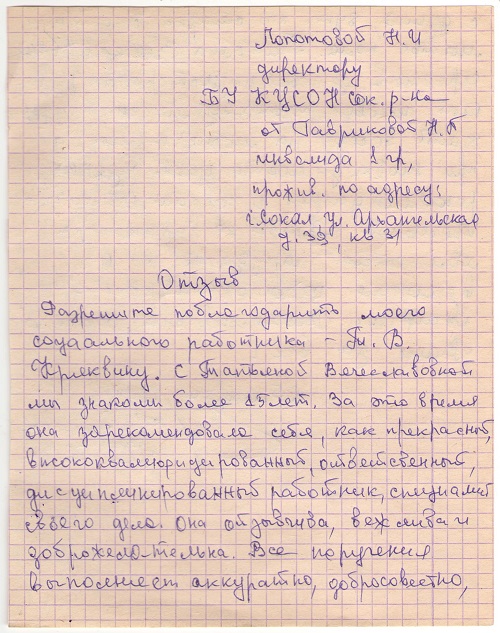 Лопотовой Н.И
директору
БУ КЦСОН Сок. р-на
от Гавриковой Н.П
инвалида 2 гр,
прожив. по адресу:
г. Сокол, ул. Архангельская
д. 39, кв 31
Отзыв
Разрешите поблагодарить моего
социального работника – Т. В.
Кряквину. С Татьяной Вячеславовной
мы знакомы более 15 лет. За это время
она зарекомендовала себя, как прекрасный,
высококвалифицированный, ответственный,
дисциплинированный работник, специалист
своего дела. Она отзывчива, вежлива и
доброжелательна. Все поручения
выполняет аккуратно, добросовестно,